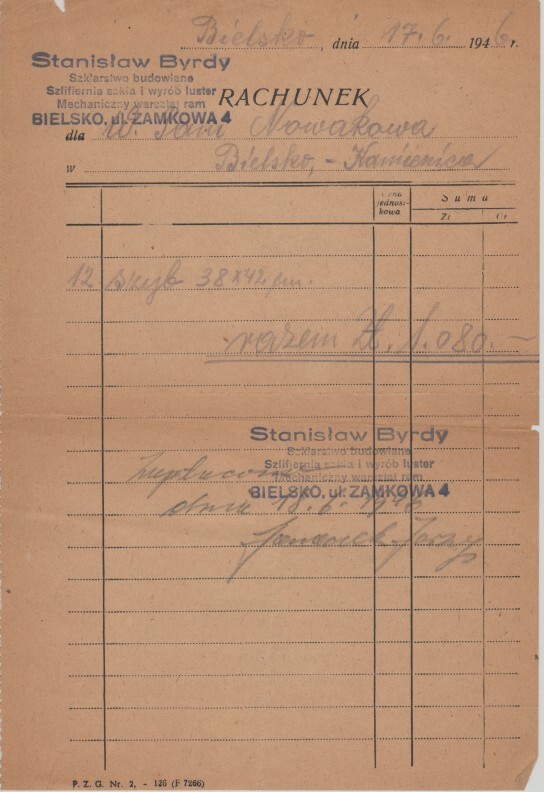 Bielsko, dnia 17. 6. 1946 r.
Stanisław Byrdy
Szklarstwo budowlane
Szlifiernia szkła i wyrób luster
Mechaniczny warsztat ram
BIELSKO, ul. ZAMKOWA 4
RACHUNEK
dla W. Pani Nowakowa
w Bielsko, - Kamienica
Cena jednost-kowa
Suma
Zł Gr
12 szyb 38 x 42 cm.
razem Zł. 1.080.-
Stanisław Byrdy
Szklarstwo budowlane
Szlifiernia szkła i wyrób luster
Mechaniczny warsztat ram
BIELSKO, ul. ZAMKOWA 4
Zapłacono
dnia 18. 6. 1946
Jerzy
P. Z. G. Nr. 2, - 126 (F 7266)